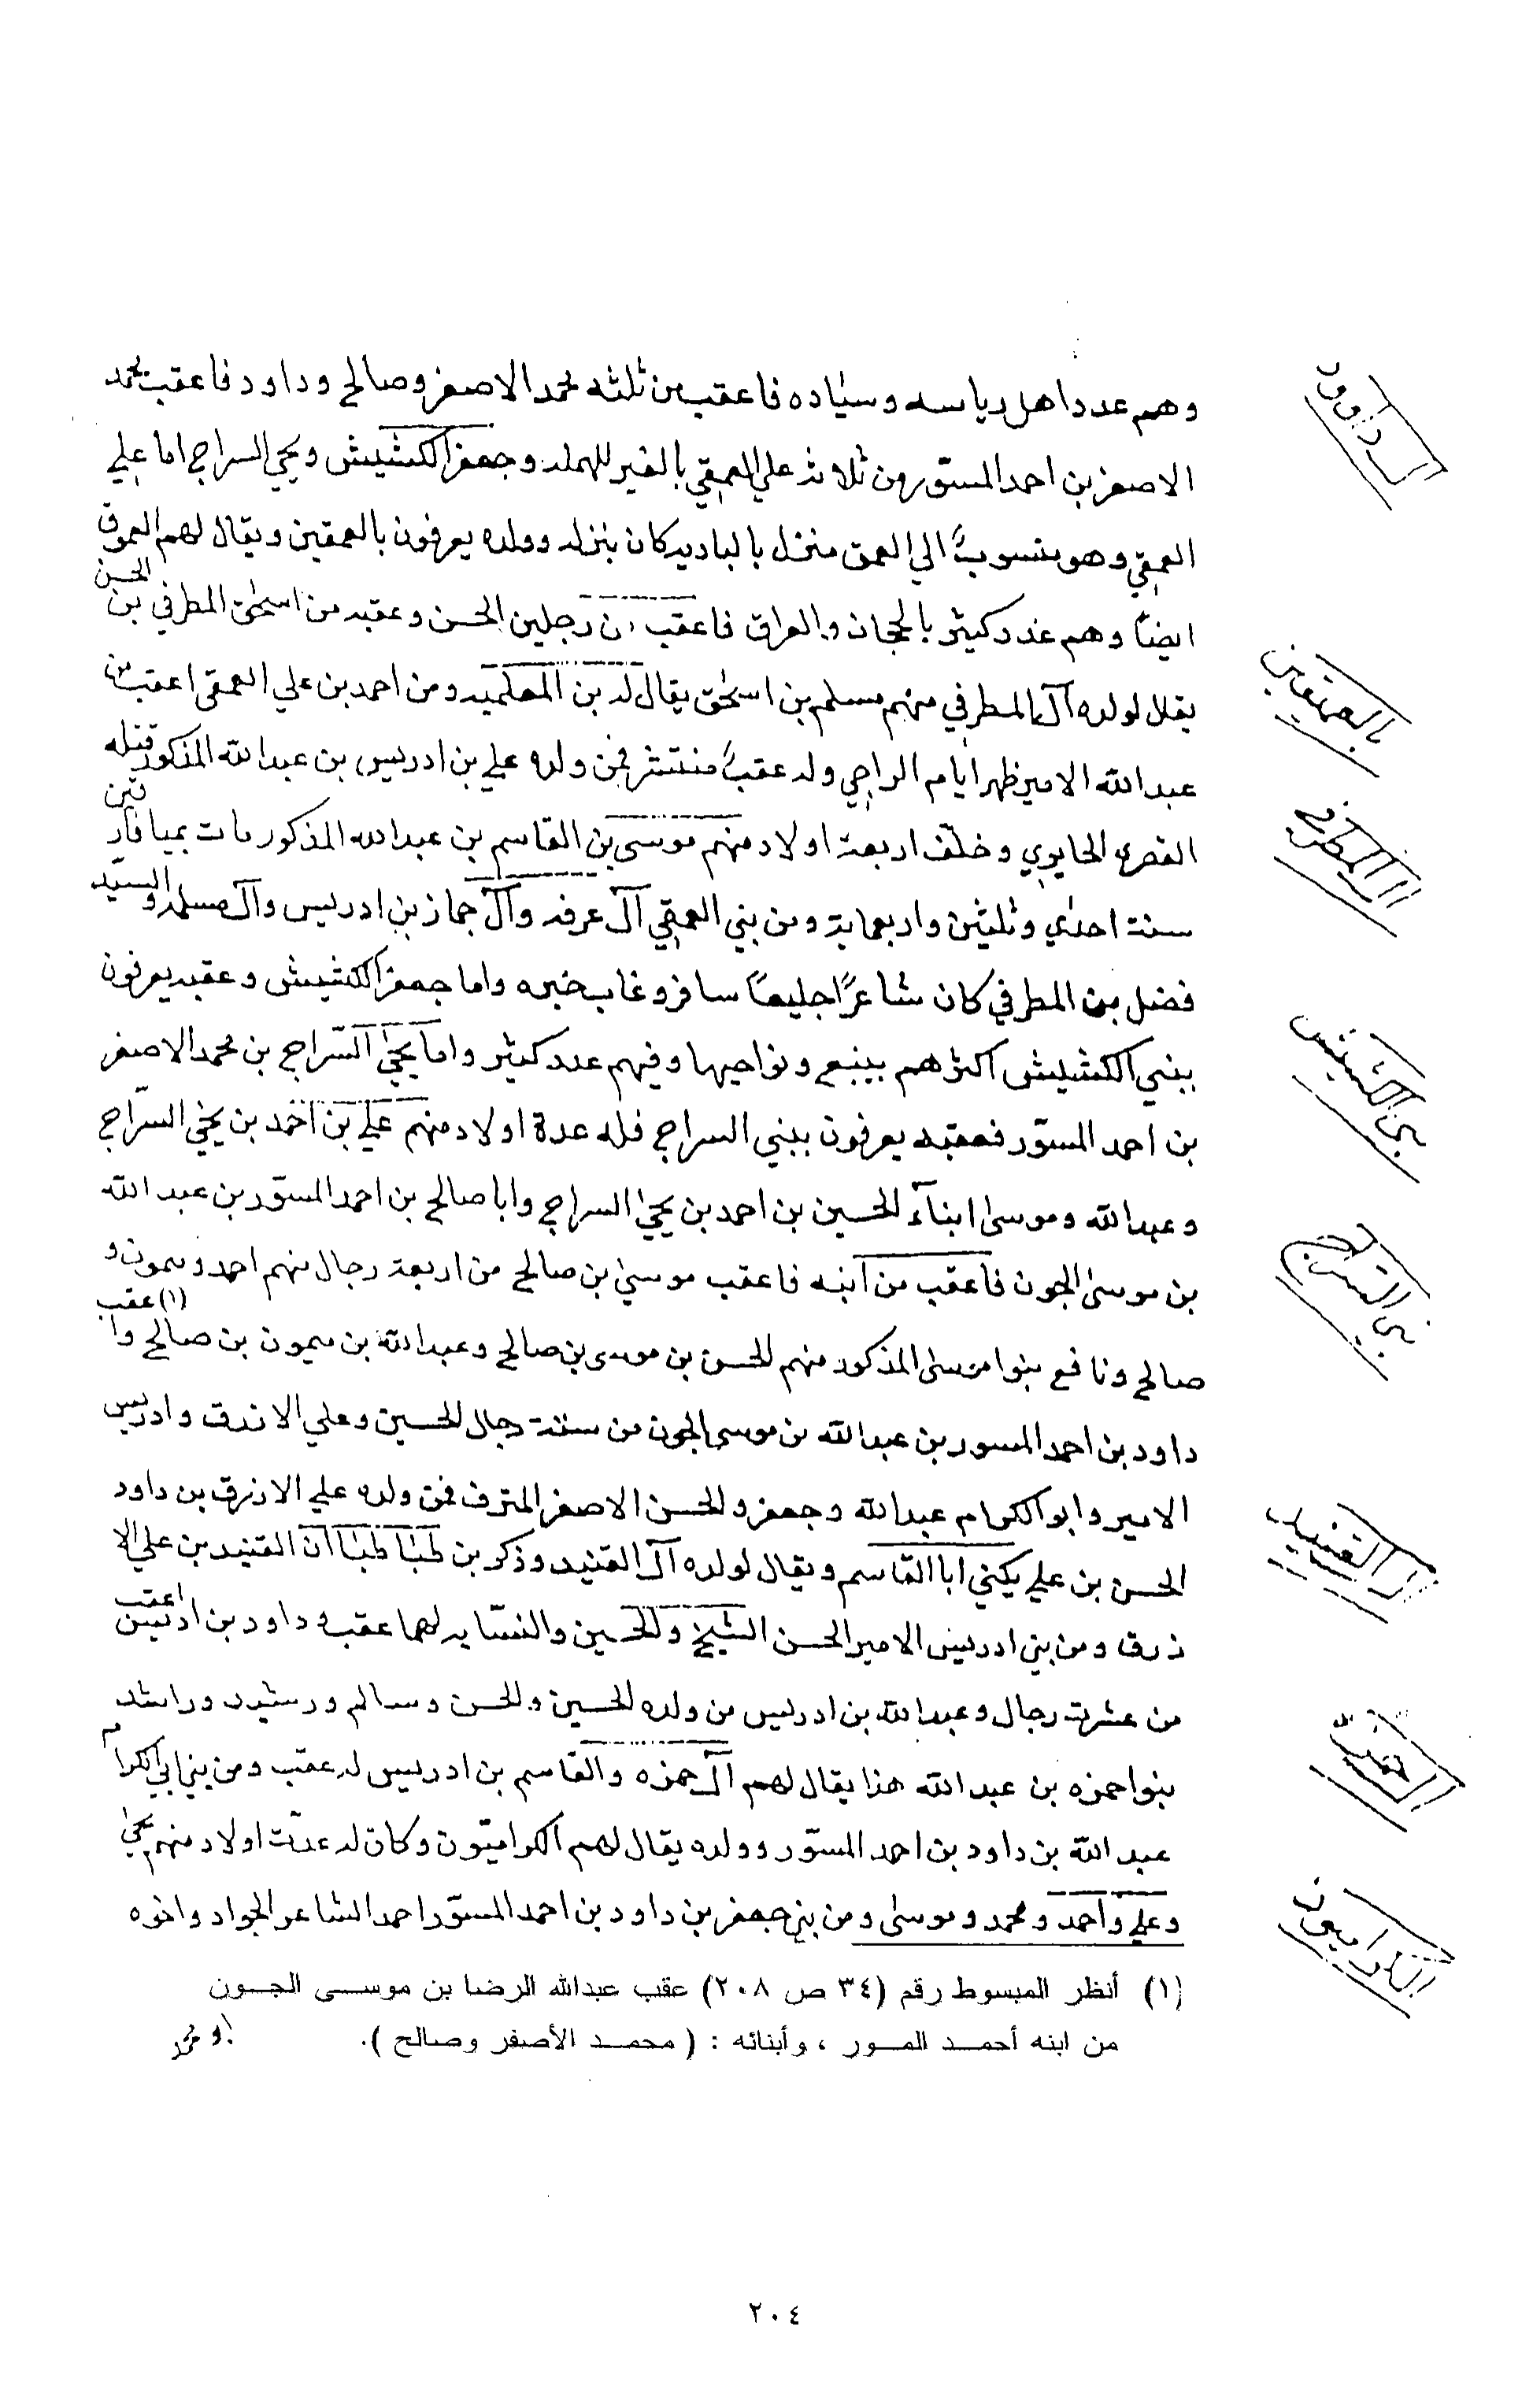 وهم عدد اهل رياسه وسياده فاعقب من ثلثه محمد الاصغر وصالح وداود فاعقب محمد
الاصغر بن احمد المسوّر من ثلاثه علي العمقي بالغير المهمله وجعفر الكشيش ويحيى السراج اما علي
العمقي وهو منسوبٌ الي العمق منزل بالباديه كان ينزله وولده يعرفون بالعمقين ويقال لهم العموق
ايضاً وهم عدد كثير بالحجاز والعراق فاعقب من رجلين الحسن وعقبه من اسحٰق المطرفي بن الحسن
يقال لولده آل المطرفي منهم مسلم بن اسحٰق يقال له بن المعلميه ومن احمد بن علي العمقي اعقب من
عبدالله الامير ظهر ايام الراضي وله عقبٌ منتشر فمن ولده علي بن ادريس بن عبدالله المذكور قتله
القصري وخلّف اربعة اولاد منهم موسى بن القاسم بن عبدالله المذكور مات بميافارقين
سنة احدي وثلثين واربعماية ومن بني العمقي آل عرفه وآل جماز بن ادريس وآل مسلمه والسيّد
فضل بن المطرفي كان شاعراً سافر وغاب خبره واما جعفر الكشيش وعقبه يعرفون
ببني الكشيش اكثرهم بينبع ونواحيها وفيهم عدد كثير واما يحيىٰ السّراج بن محمد الاصغر
بن احمد المسوّر فعقبه يعرفون ببني السراج فله عدة اولاد منهم علي بن احمد بن يحيي السّراج
وعبدالله وموسىٰ ابنآء الحسين بن احمد بن يحيىٰ السراج واما صالح بن احمد المسوّر بن عبدالله
بن موسىٰ الجون فاعقب من ابنه فاعقب موسىٰ بن صالح من اربعة رجال منهم احمد وميمون و
صالح ونافع بنوا موسىٰ المذكور منهم الحسن بن موسى بن صالح وعبدالله بن ميمون بن صالح وا(١)عقب
داود بن احمد المسور بن عبدالله بن موسى الجون من ستة رجال الحسين وعلي الازرق وادريس
الامير وابو الكرام عبدالله وجعفر والحسن الاصغر المترف فمن ولده علي الازرق بن داود
الحسن بن علي يكني ابا القاسم ويقال لولده آل القنيد وذكر بن طباطبا ان القنيد بن علي الا
زرق ومن بني ادريس الامير الحسن الشيخ والحسين والنسّابه لهما عقب داود بن ادريس اعقب
من عشرة رجال وعبدالله بن ادريس من ولده الحسين والحسن وسالم ورشيد وراشد
بنوا حمزه بن عبدالله هذا يقال لهم آل حمزه والقاسم بن ادريس له عقب ومن بني ابي الكرام
عبدالله بن داود بن احمد المسوّر وولده يقال لهم الكراميّون وكان له عدّة اولاد منهم يحيىٰ
وعلي واحمد ومحمد وموسىٰ ومن بني جعفر بن داود بن احمد المسوّر احمد الشاعر الجواد واخوه
ابو محمد
ال داوود
العمقين
ال المطرفي
بني الكشيش
بني السراج
ال القنيد
ال حمزة
الكراميون
(١) أنظر المبسوط رقم (٣٤ ص ٢٠٨) عقب عبدالله الرضا بن موسى الجون
من ابنه أحمد المور ، وأبنائه : ( محمد الأصفر وصالح ).
٢٠٤